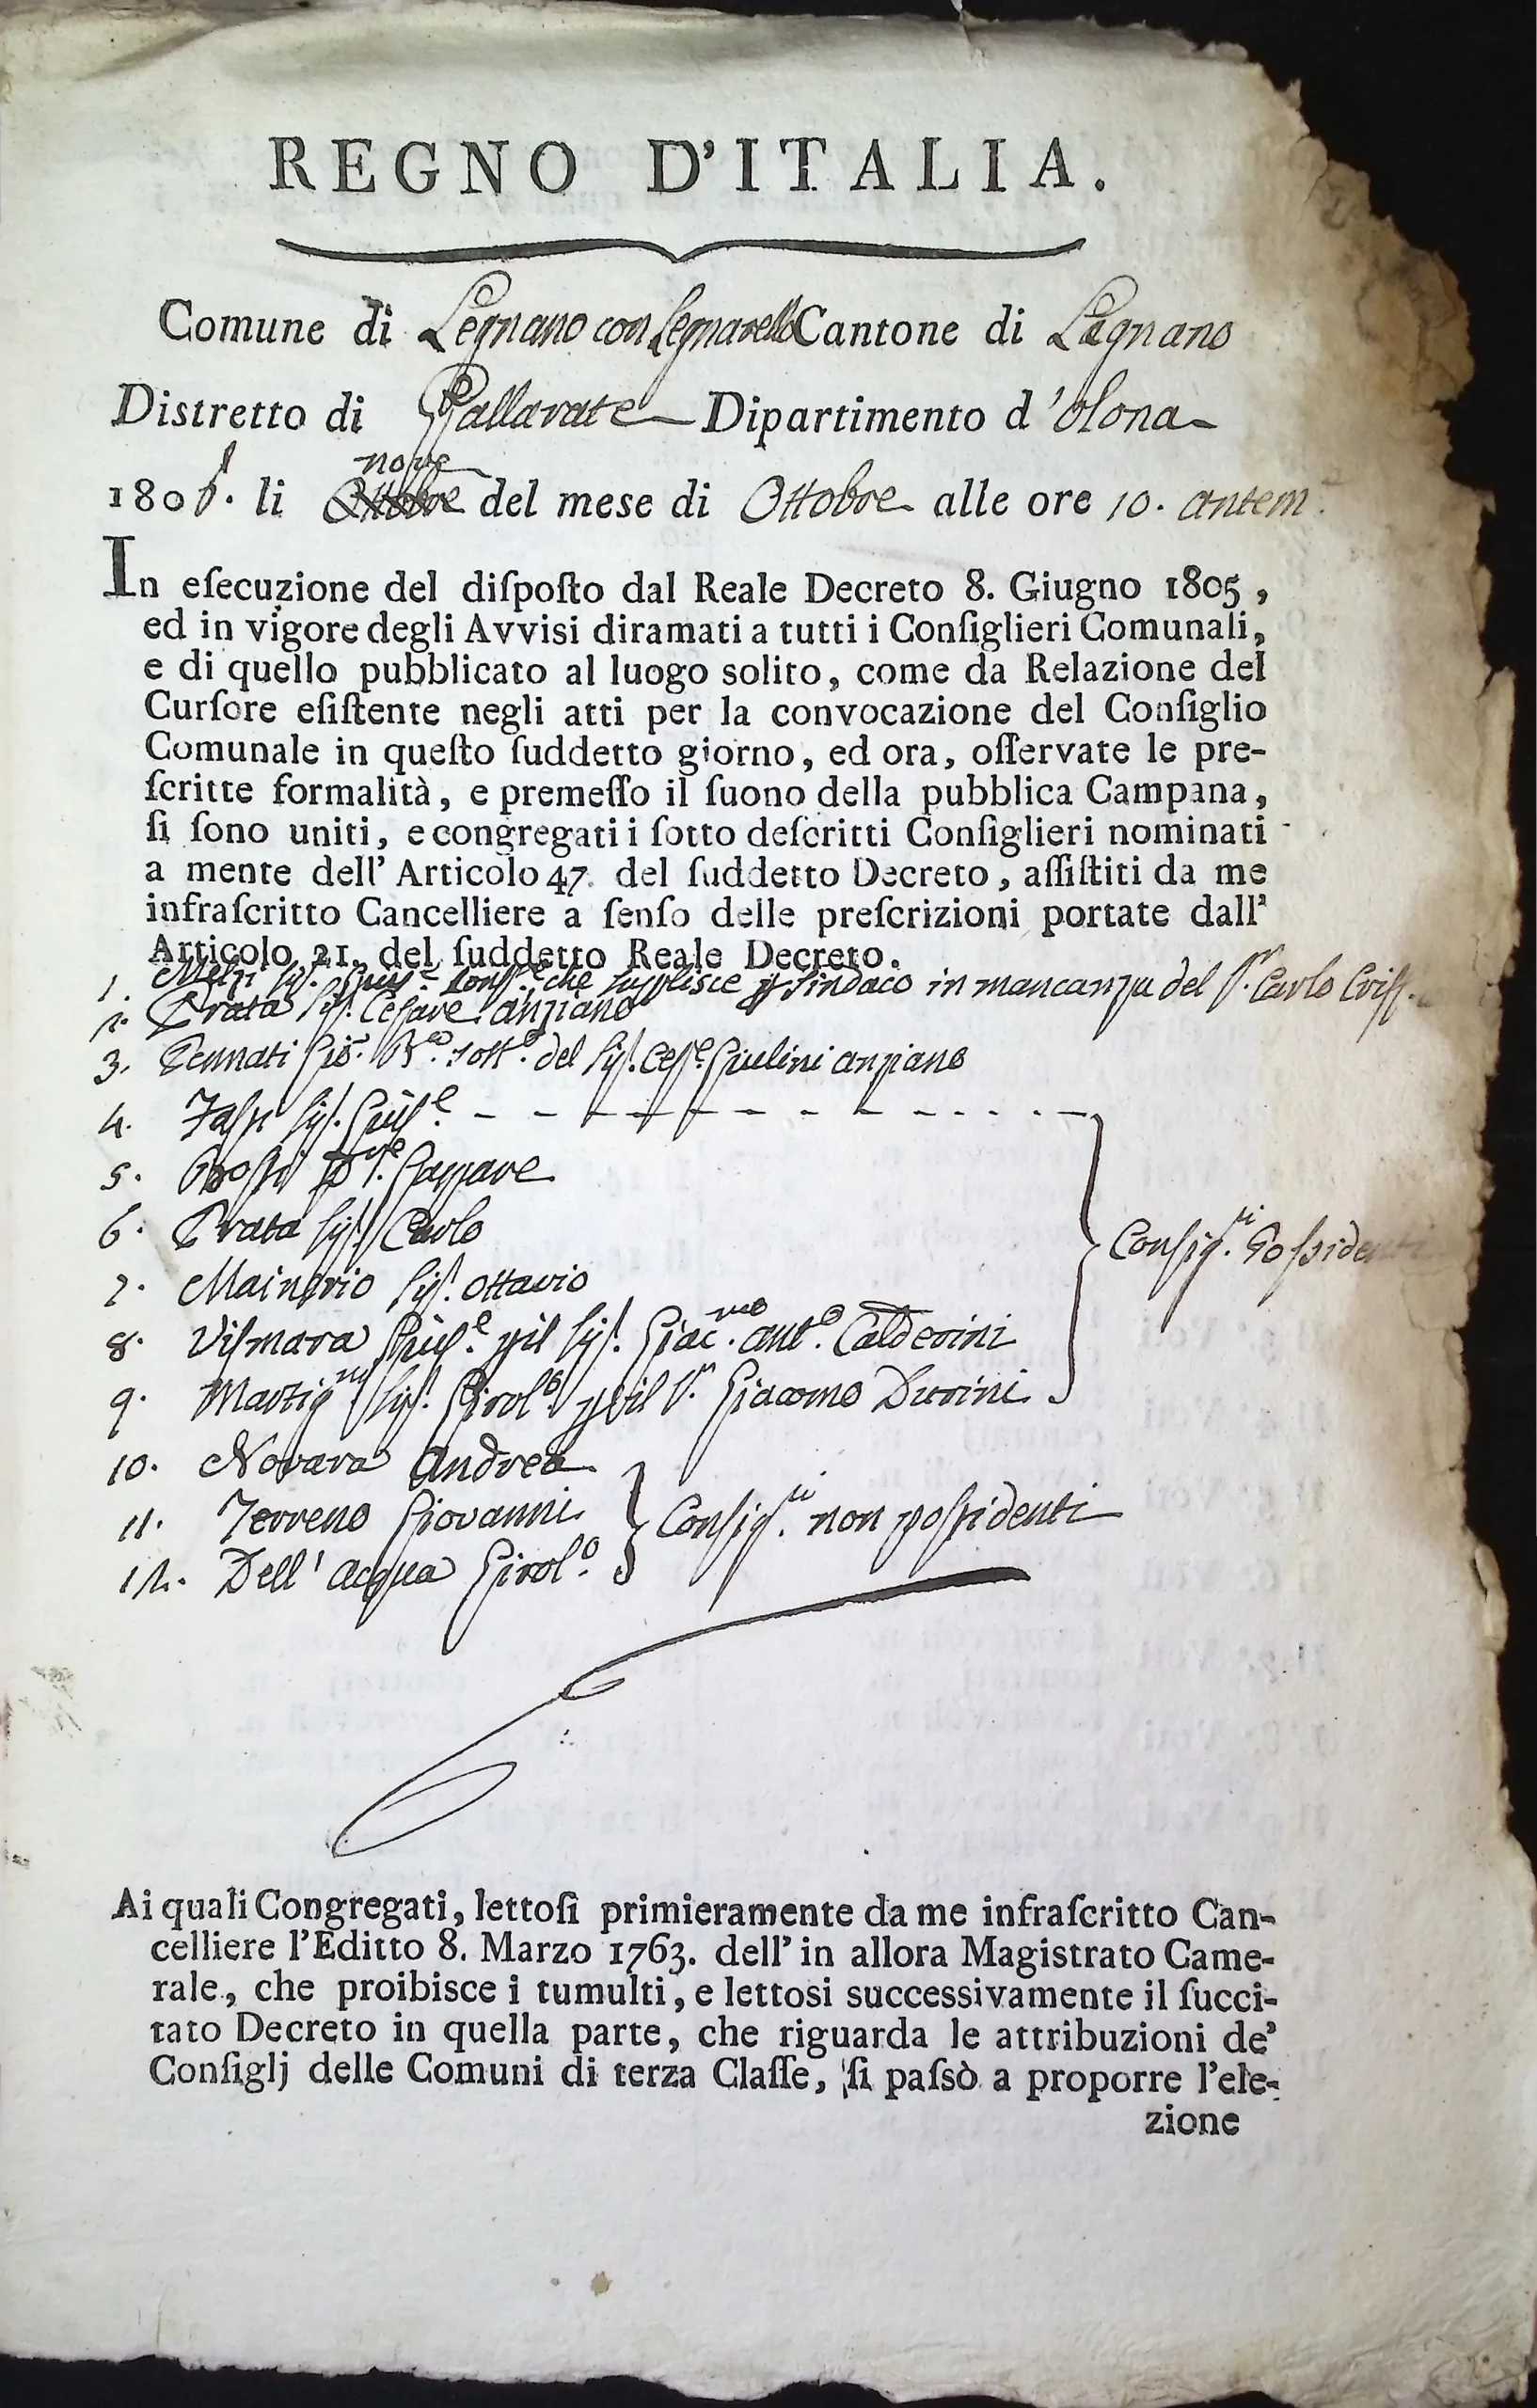 REGNO D'ITALIA.
Comune di Legnano con Legnarello Cantone di Legnano
Distretto di Gallarate Dipartimento d'Olona
nove
1806. li Ottobre del mese di Ottobre alle ore 10. antem.
In eſecuzione del diſpoſto dal Reale Decreto 8. Giugno 1805,
ed in vigore degli Avviſi diramati a tutti i Conſiglieri Comunali,
e di quello pubblicato al luogo solito, come da Relazione del
Curſore eſiſtente negli atti per la convocazione del Conſiglio
Comunale in queſto ſuddetto giorno, ed ora, oſſervate le pre-
ſcritte formalità, e premeſſo il ſuono della pubblica Campana,
ſi ſono uniti, e congregati i ſotto deſcritti Conſiglieri nominati
a mente dell' Articolo 47. del ſuddetto Decreto, aſſiſtiti da me
infraſcritto Cancelliere a ſenſo delle preſcrizioni portate dall'
Articolo 21. del ſuddetto Reale Decreto.
1. Melzi Sig. Giuſ.e Conſ.e che ſuplisce Sindaco in mancanza del S.r Carlo
2. Prata Sig. Ceſare anziano
3. Pennati Gio. B.a soſt.o del Sig. Giulini anziano
4. Sig. Giuſ.e
5. Gaſpare
6. Prata Sig. Carlo
7. Mainerio Sig. Ottavio
8. Viſmara Giuſ.e pil Sig. Giac.mo Ant.o Calderini
9. Martig.ni Sig. Girol.o pil S.r Giacomo Durini
Conſig.ri Poſſidenti
10. Novara Andrea
11. Terreno Giovanni
12. Dell'Acqua Girol.o
Conſig.ri non poſſidenti
Ai quali Congregati, lettoſi primieramente da me infraſcritto Can-
celliere l'Editto 8. Marzo 1763. dell' in allora Magistrato Came-
rale, che proibisce i tumulti, e lettosi successivamente il ſucci-
tato Decreto in quella parte, che riguarda le attribuzioni de'
Conſiglj delle Comuni di terza Claſſe, ſi paſsò a proporre l'ele-
zione